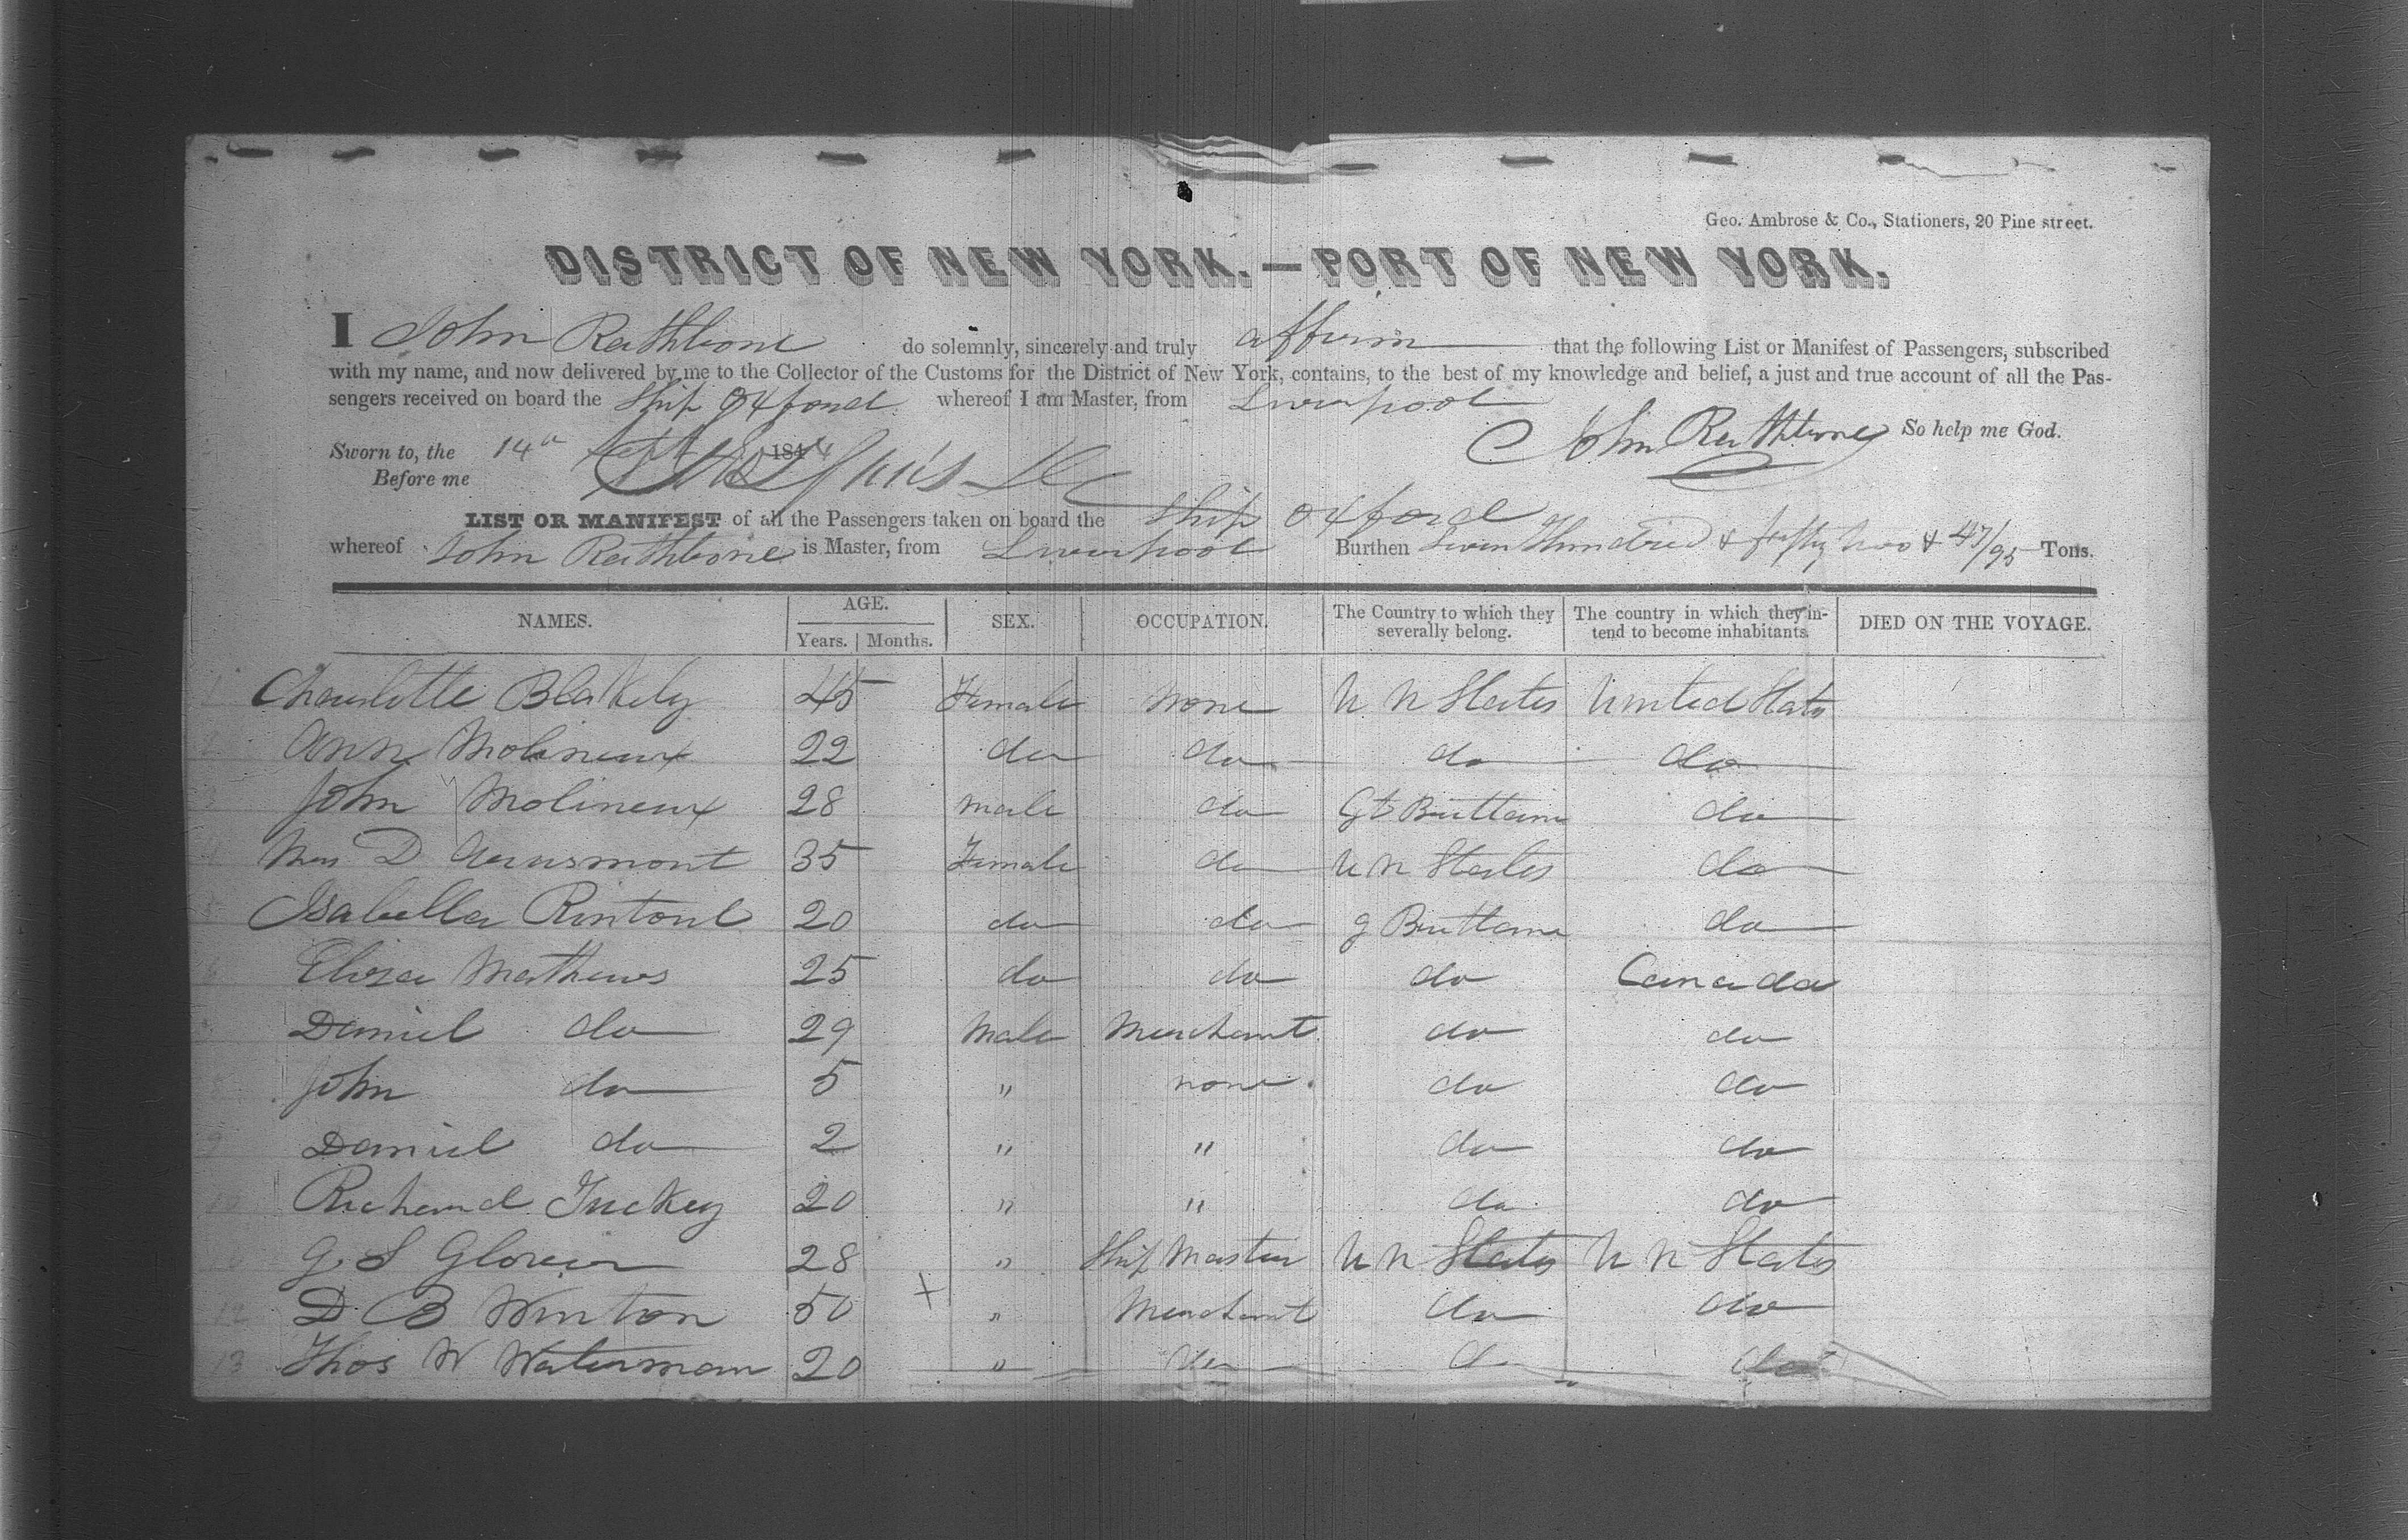 Geo. Ambrose & Co., Stationers, 20 Pine street.
DISTRICT OF NEW YORK.—PORT OF NEW YORK.
I John Rathbone do solemnly, sincerely and truly affirm that the following List or Manifest of Passengers, subscribed
with my name, and now delivered by me to the Collector of the Customs for the District of New York, contains, to the best of my knowledge and belief, a just and true account of all the Pas-
sengers received on board the Ship Oxford whereof I am Master, from Liverpool
John Rathbone So help me God.
Sworn to, the 14 1844
Before me
LIST OR MANIFEST of all the Passengers taken on board the Ship Oxford
whereof John Rathbone is Master, from Liverpool Burthen Seven Hundred & fifty two & 47/95 Tons.
NAMES. AGE. SEX. OCCUPATION. The Country to which they severally belong. The country in which they in-tend to become inhabitants. DIED ON THE VOYAGE.
Years. Months.
1 Charlotte Blakely 45 Female None U N States United States
2 Ann Molineux 22 do do do do
3 John Molineux 28 male do Gt Brittain do
4 Mrs D 35 Female do U N States do
5 Isabella Rintoul 20 do do g Brittain do
6 Eliza Mathews 25 do do do Canada
Daniel do 29 Male Merchant do do
8 John do 5 " none do do
9 Daniel do 2 " " do do
10 Richard Tuckey 20 " " do do
G S Glover 28 " Ship Master U N States U N States
12 D B Winton 50 + " Merchant do do
13 Thos W Waterman 20 " do do do